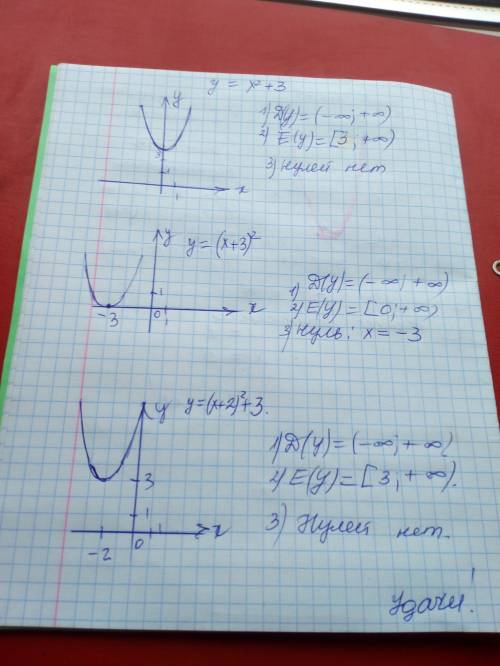 y = x²+3
y
1) D(y)=(-∞; +∞)
2) E(y)=[3; +∞)
3) нулей нет
3
1
1
x
y
y=(x+3)²
1
-3
0
1
x
1) D(y)=(-∞; +∞)
2) E(y)=[0; +∞)
3) нуль: x=-3
y
y=(x+2)²+3.
3
1
-2
0
1
x
1) D(y)=(-∞; +∞)
2) E(y)=[3; +∞).
3) Нулей нет.
Удачи!